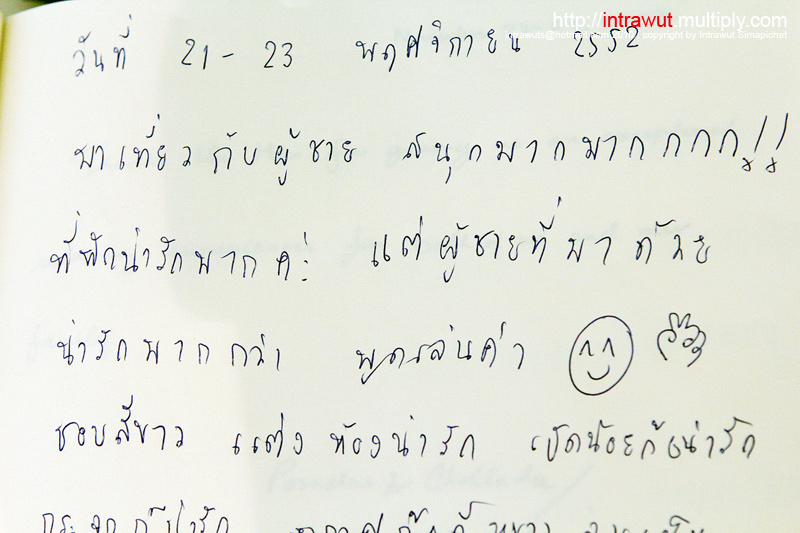 http://intrawut.multiply.com
copyright by Intrawut Simapichet
วันที่ 21 - 23 พฤศจิกายน 2552
มาเที่ยวกับผู้ชาย สนุกมากมากกกก!!
ที่พักน่ารักมากค่ะ แต่ผู้ชายที่มาด้วย
น่ารักมากกว่า พูดเล่นค่า
ชอบสีขาว แต่งห้องน่ารัก เป็ดน้อยก็น่ารัก
กระจกก็น่ารัก